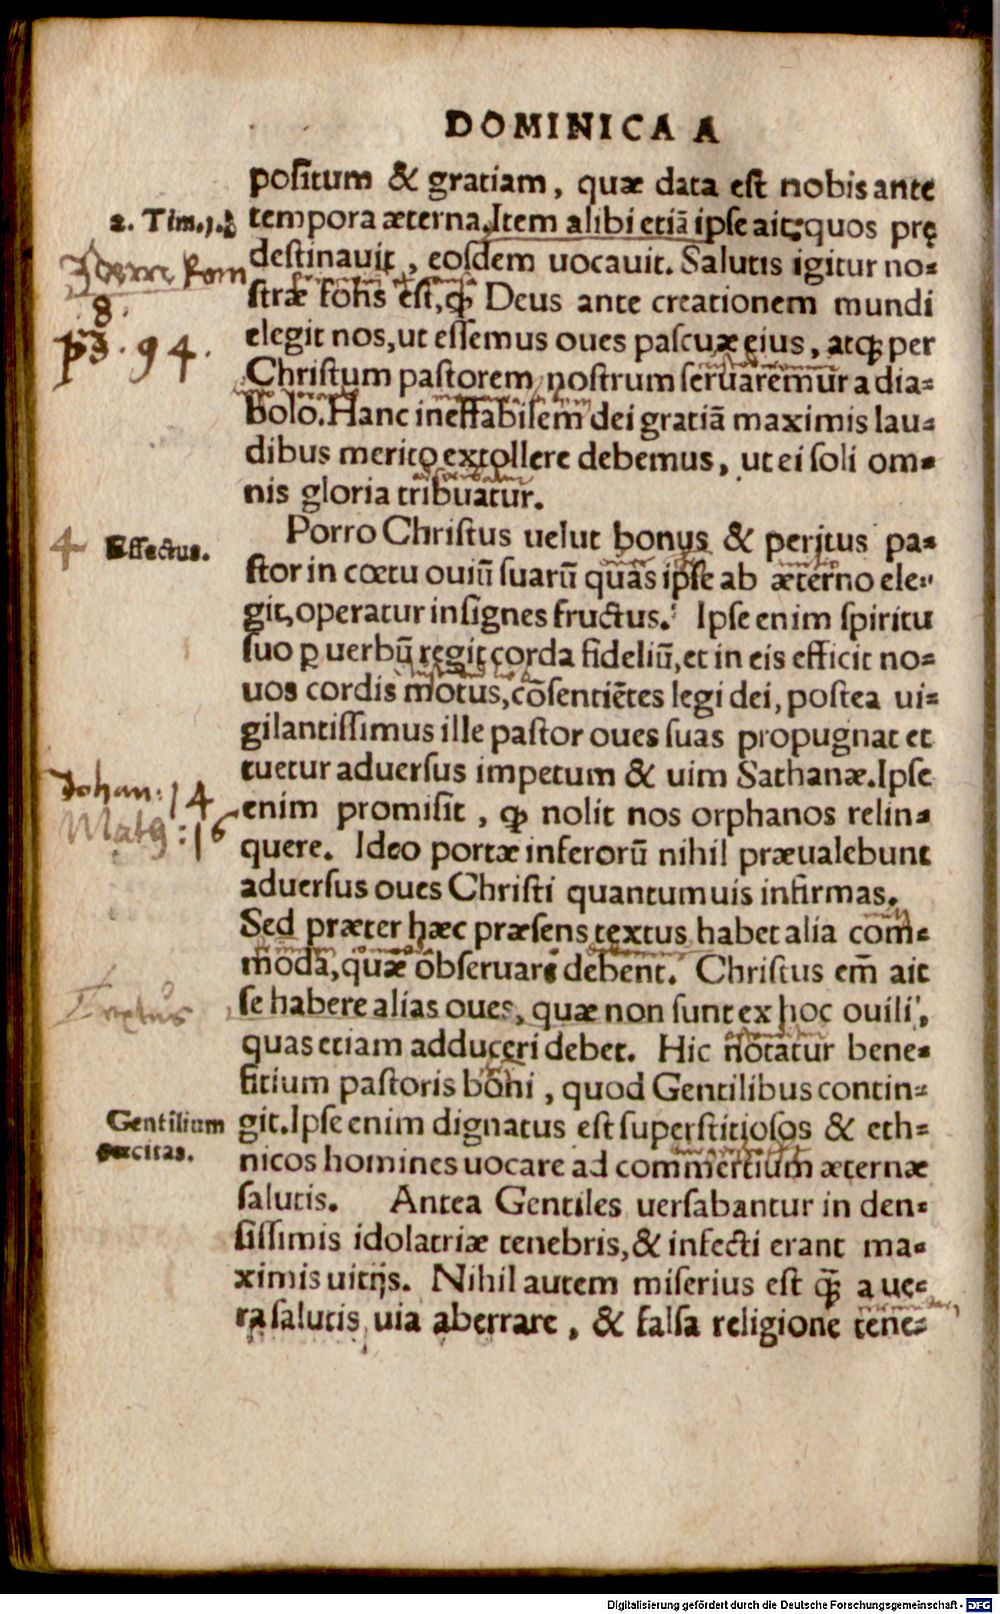 DOMINICA A
poſitum & gratiam, quæ data eſt nobis ante
2. Tim.1.
tempora æterna. Item alibi etiā ipſe ait: quos prę
Idem Rom
8.
deſtinavit, eoſdem uocauit. Salutis igitur no-
ſtræ fons eſt, ꝙ Deus ante creationem mundi
ps. 94.
elegit nos, ut eſſemus oues paſcuæ eius, atqꝫ per
Chriſtum paſtorem noſtrum ſeruaremur a dia-
bolo. Hanc ineffabilem dei gratiā maximis lau-
dibus merito extollere debemus, ut ei ſoli om-
nis gloria tribuatur.
4 Effectus.
Porro Chriſtus uelut bonus & peritus pa-
ſtor in cœtu ouiū ſuarū quas ipſe ab æterno ele-
git, operatur inſignes fructus. Ipſe enim ſpiritu
ſuo ꝑ uerbū regit corda fideliū, et in eis efficit no-
uos cordis motus, cōſentiētes legi dei, poſtea ui-
gilantiſſimus ille paſtor oues ſuas propugnat et
tuetur aduerſus impetum & uim Sathanæ. Ipſe
Johan: 14
Math: 16
enim promiſit, ꝙ nolit nos orphanos relin-
quere. Ideo portæ inferorū nihil præualebunt
aduerſus oues Chriſti quantumuis infirmas.
Sed præter hæc præſens textus habet alia com-
moda, quæ obſeruari debent. Chriſtus em̄ ait
ſe habere alias oues, quæ non ſunt ex hoc ouili,
quas etiam adduceri debet. Hic notatur bene-
fitium paſtoris boni, quod Gentilibus contin-
Gentilium
cæcitas.
git. Ipſe enim dignatus eſt ſuperſtitioſos & eth-
nicos homines uocare ad commertium æternæ
ſalutis. Antea Gentiles uerſabantur in den-
ſiſſimis idolatriæ tenebris, & infecti erant ma-
ximis uitijs. Nihil autem miſerius eſt ꝙ̄ a ue-
ra ſalutis uia aberrare, & falſa religione tene-
Digitalisierung gefördert durch die Deutsche Forschungsgemeinschaft - DFG